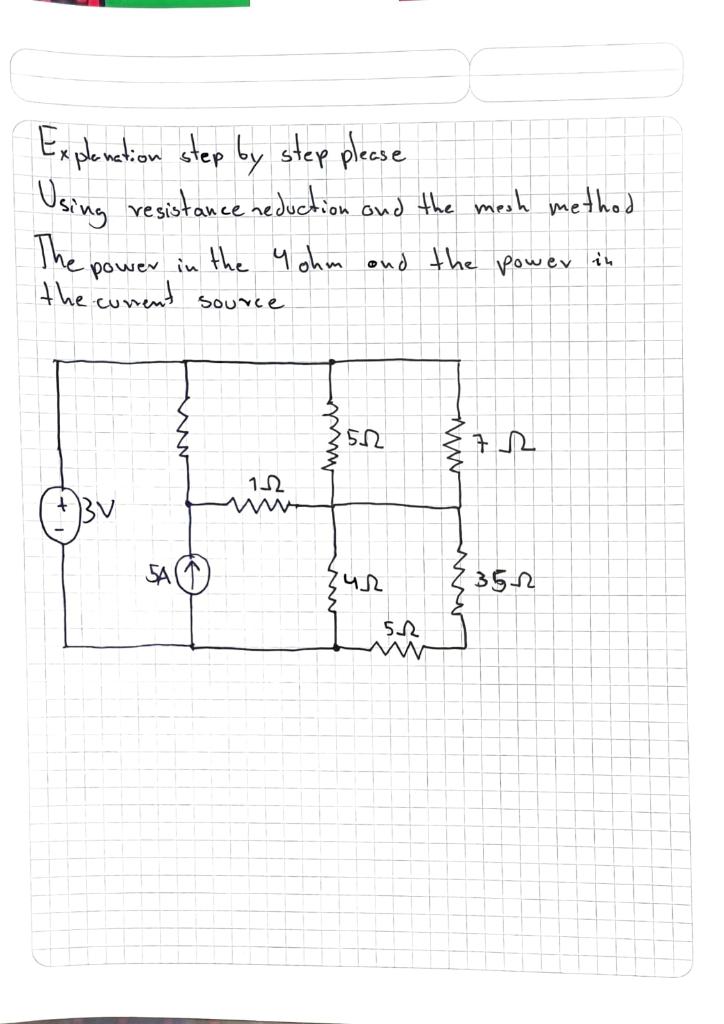 Explanation step by step please
Using resistance reduction and the mesh method
The power in the 4 ohm and the power in
the current source
5Ω
7 Ω
1Ω
+
3V
-
5A
4Ω
35Ω
5Ω